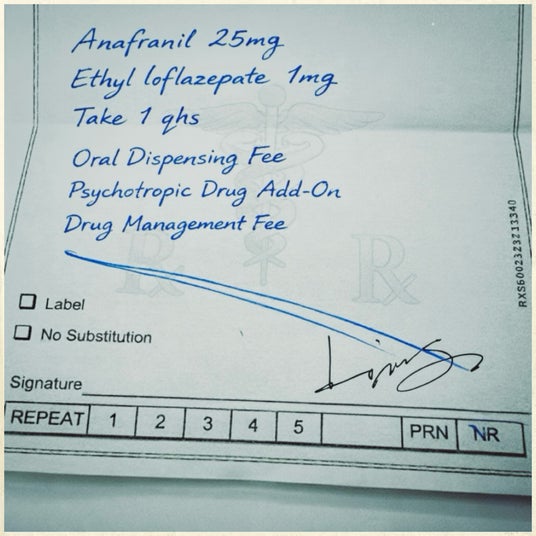 Anafranil 25mg
Ethyl loflazepate 1mg
Take 1 qhs
Oral Dispensing Fee
Psychotropic Drug Add-On
Drug Management Fee
RXS6002323Z13340
Label
No Substitution
Signature
REPEAT 1 2 3 4 5 PRN NR